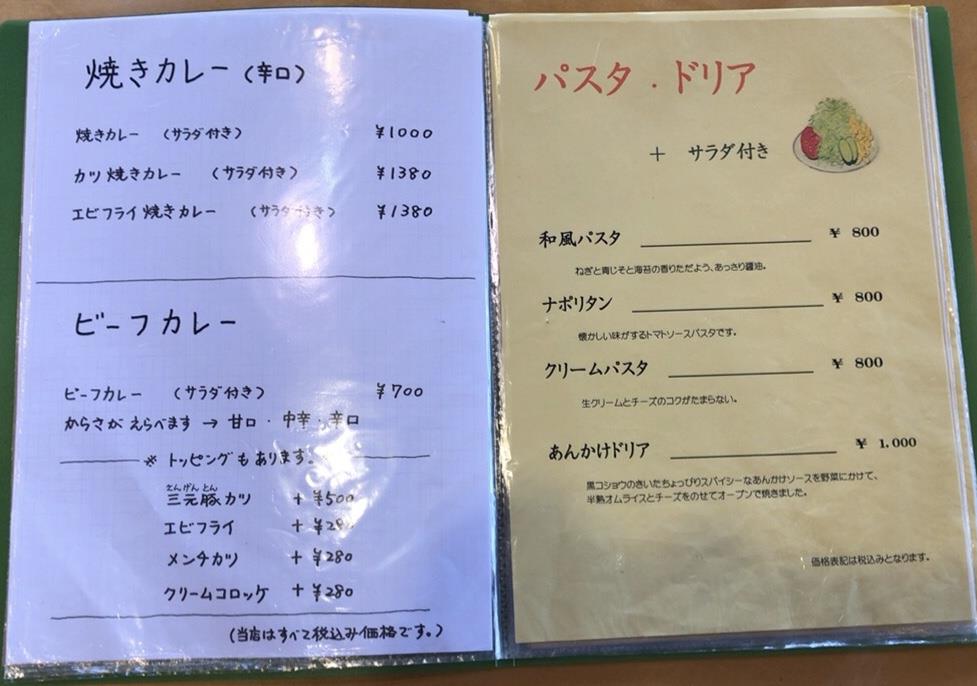 焼きカレー（辛口）
焼きカレー （サラダ付き） ￥1000
カツ焼きカレー （サラダ付き） ￥1380
エビフライ焼きカレー （サラダ付き） ￥1380
ビーフカレー
ビーフカレー （サラダ付き） ￥700
からさがえらべます → 甘口・中辛・辛口
※ トッピングもあります。
さんげんとん
三元豚カツ ＋￥500
エビフライ ＋￥280
メンチカツ ＋￥280
クリームコロッケ ＋￥280
（当店はすべて税込み価格です。）
パスタ．ドリア
＋ サラダ付き
和風パスタ ￥ 800
ねぎと青じそと海苔の香りただよう、あっさり醤油。
ナポリタン ￥ 800
懐かしい味がするトマトソースパスタです。
クリームパスタ ￥ 800
生クリームとチーズのコクがたまらない。
あんかけドリア ￥ 1.000
黒コショウのきいたちょっぴりスパイシーなあんかけソースを野菜にかけて、
半熟オムライスとチーズをのせてオーブンで焼きました。
価格表記は税込みとなります。